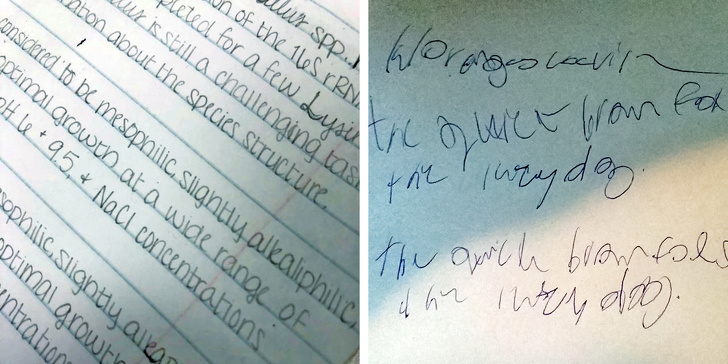 ellus spp.
on of the 16S rRNA
pleted for a few Lysin
is still a challenging tas
ation about the species structure
considered to be mesophilic, slightly alkaliphilic,
optimal growth at a wide range of
pH 6 + 9.5, & NaCl concentrations
sophilic, slightly alka
optimal growt
entrations
the quick brown fox
the lazy dog.
the quick brown
the lazy dog.